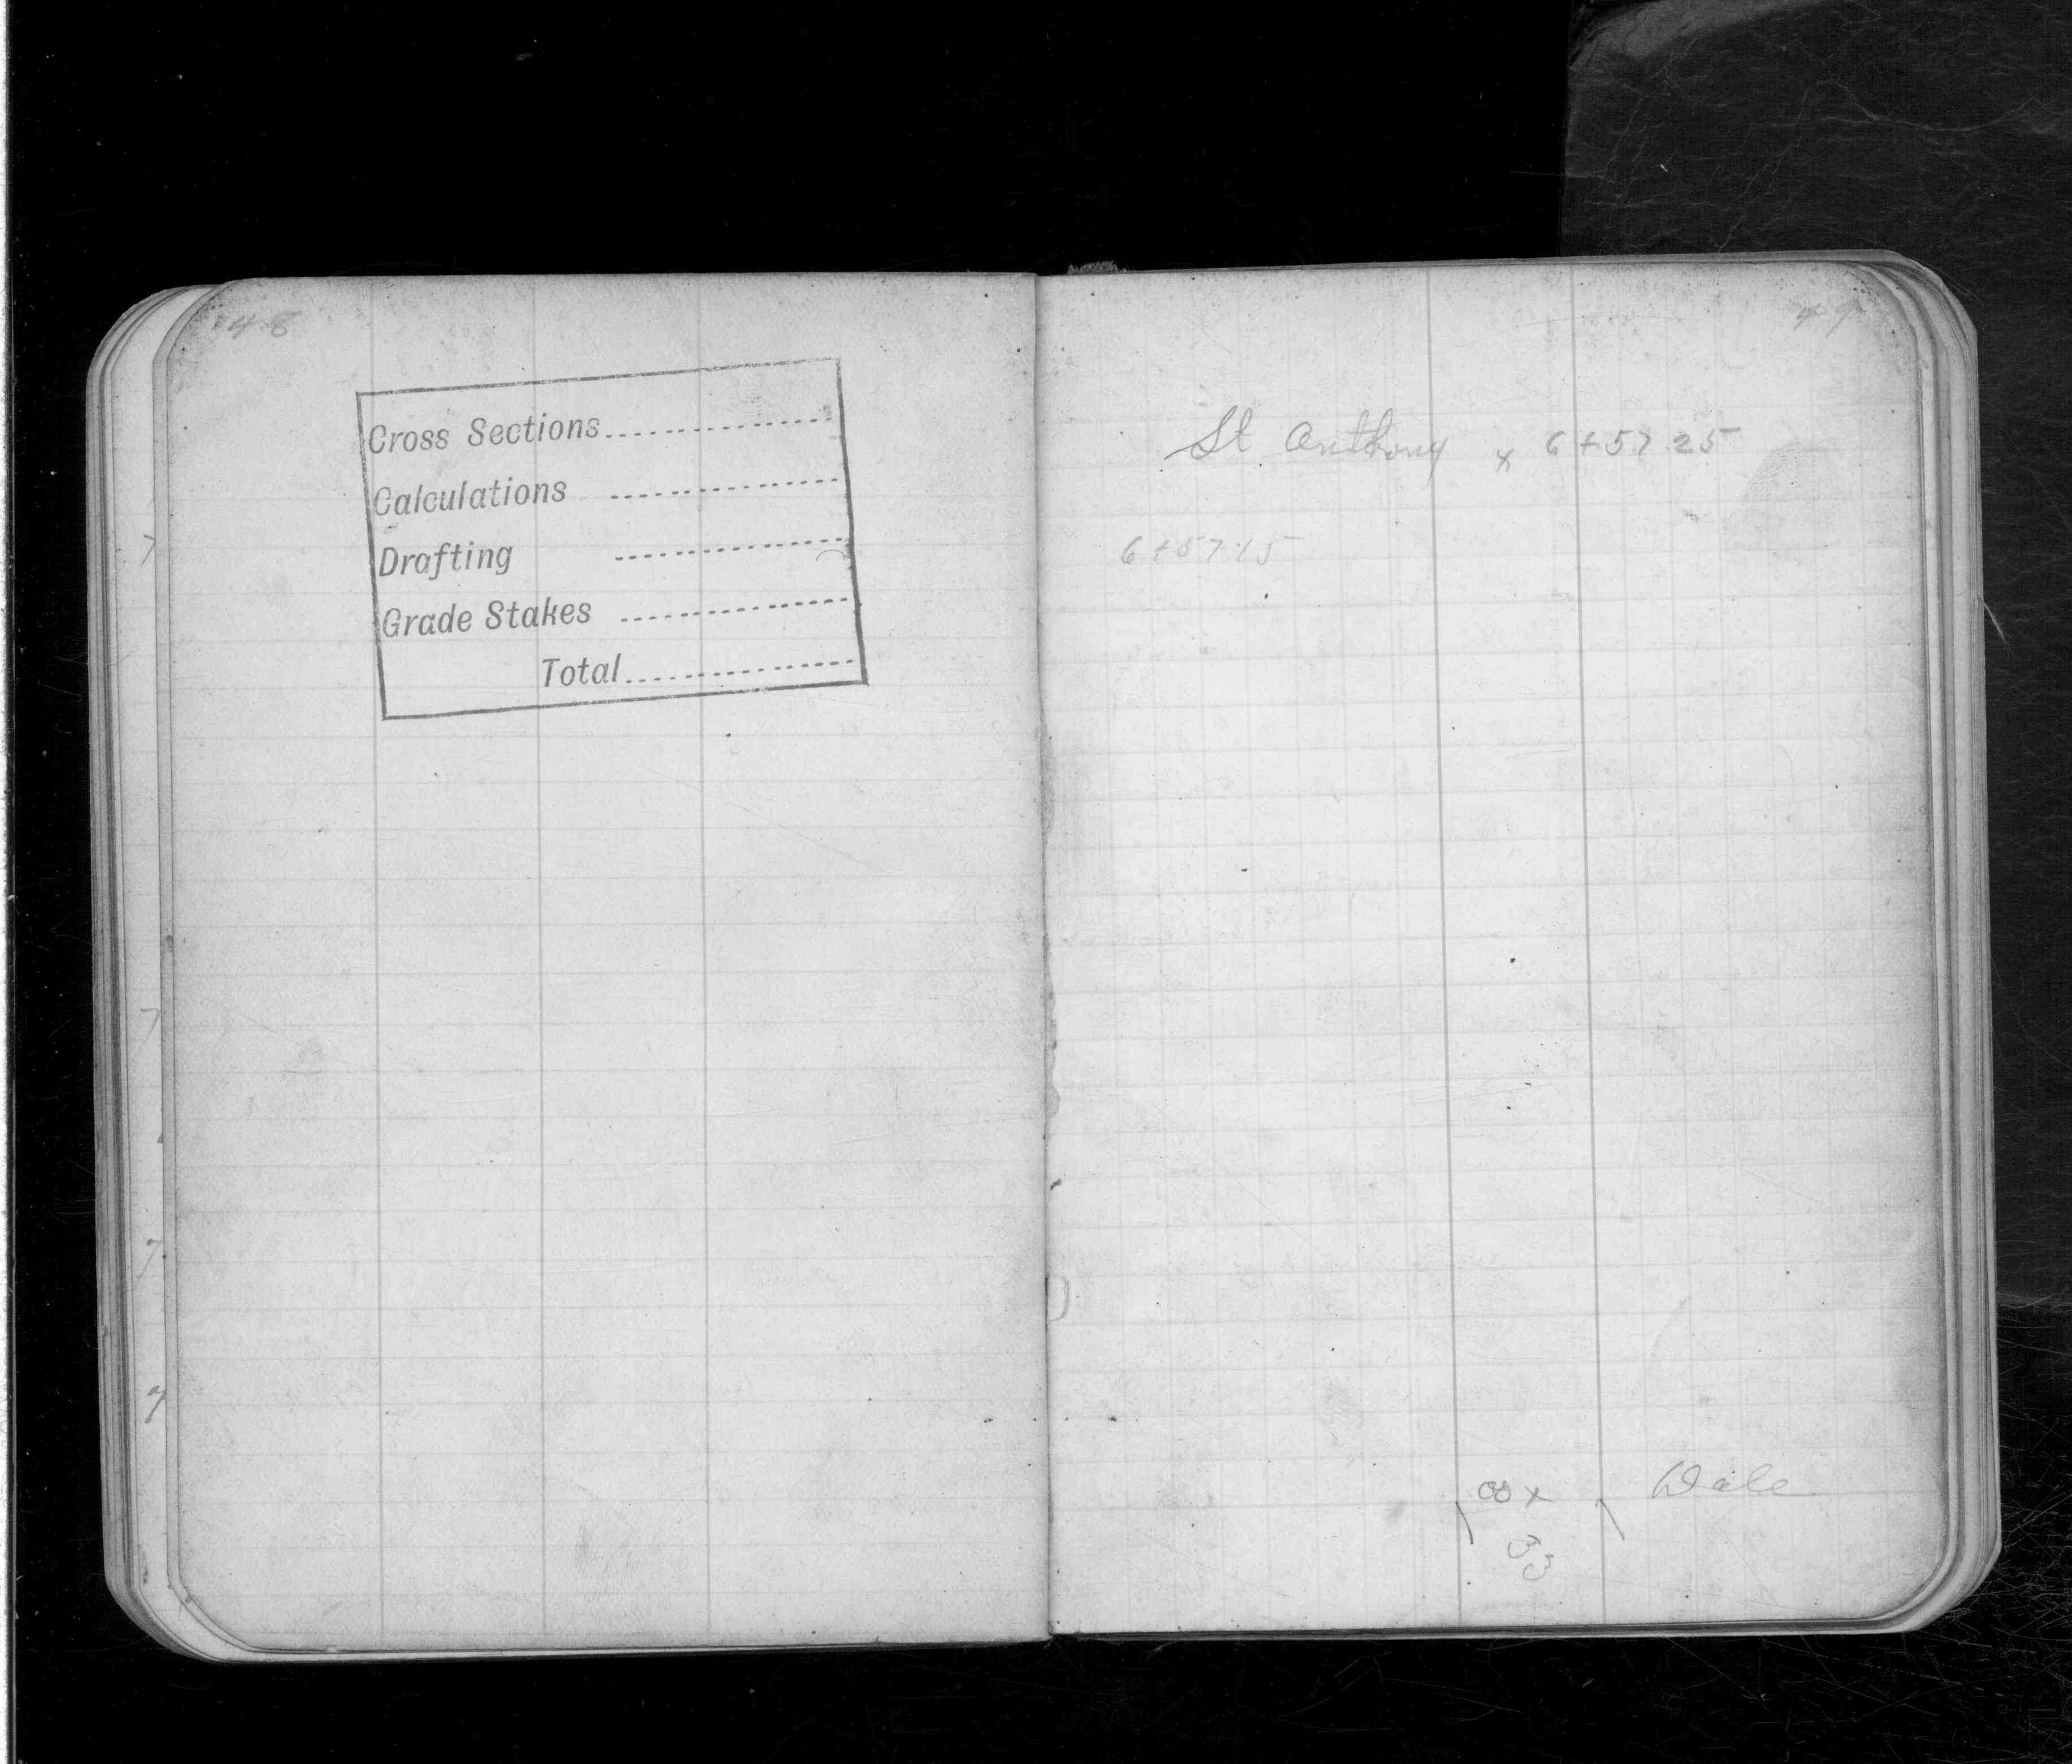 48
Cross Sections
Calculations
Drafting
Grade Stakes
Total
49
St Anthony x 6+57.25
6+57.15
00 x Dale
33